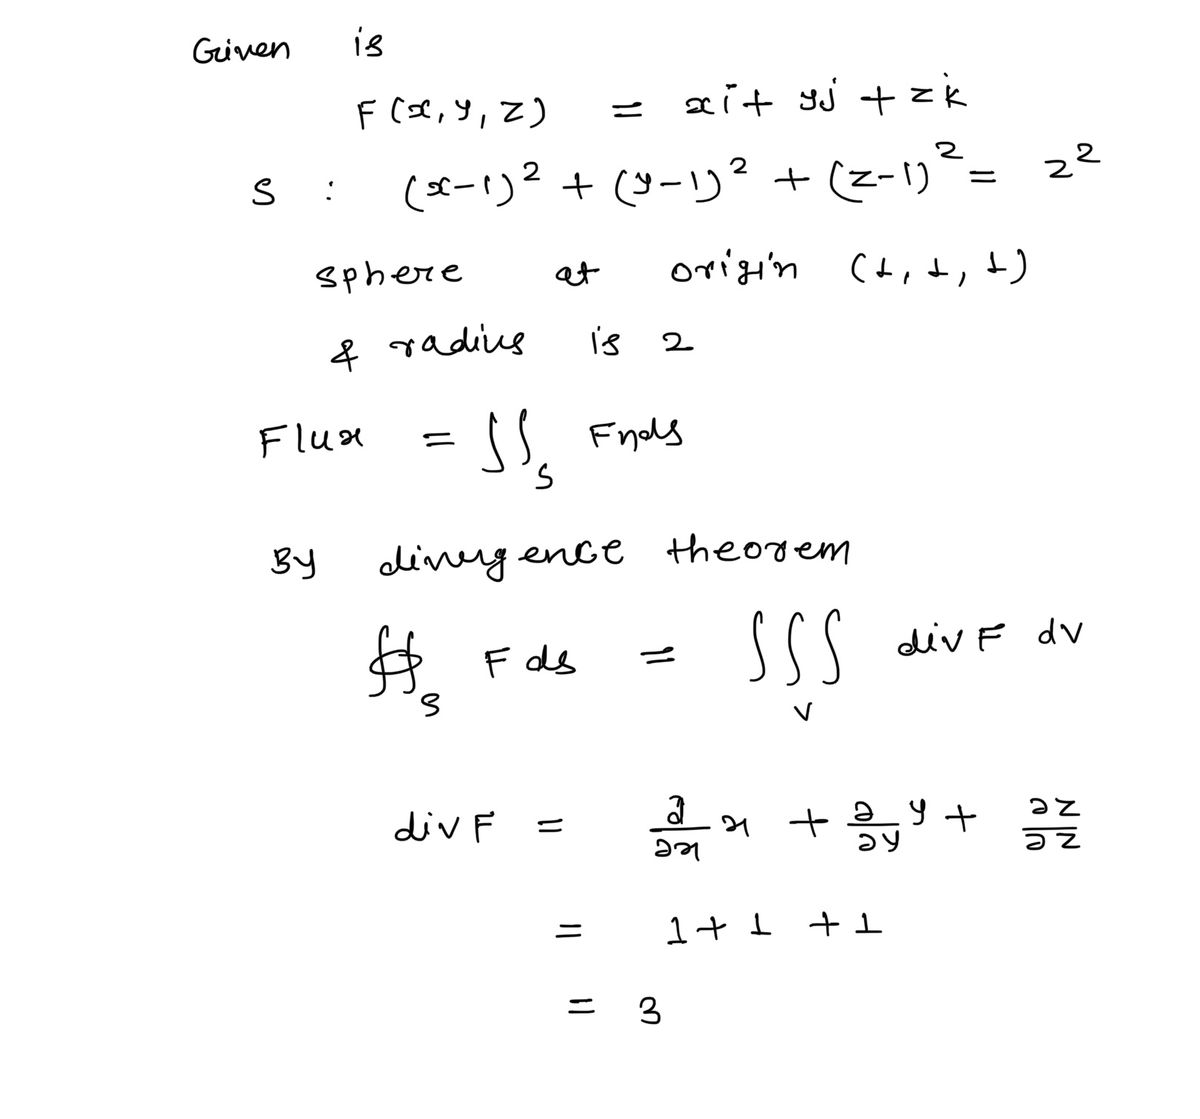 Given is
F(x, y, z) = xi + yj + zk
S : (x-1)² + (y-1)² + (z-1)² = 2²
sphere at origin (1, 1, 1)
& radius is 2
Flux = ∫∫_S Fnds
By divergence theorem
∯_S F ds = ∫∫∫_V div F dv
div F = ∂/∂x x + ∂/∂y y + ∂z/∂z
= 1 + 1 + 1
= 3